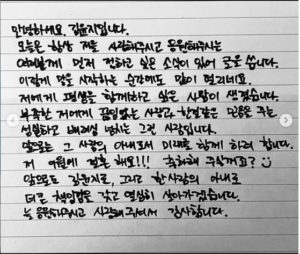 안녕하세요, 김윤지입니다.
오늘은 항상 저를 사랑해주시고 응원해주시는
여러분께 먼저 전하고 싶은 소식이 있어 글을 씁니다.
이렇게 말을 시작하는 순간에도 많이 떨리네요.
저에게 평생을 함께하고 싶은 사람이 생겼습니다.
부족한 저에게 끊임없는 사랑과, 한결같은 모습을 주는
성실하고 배려심 넘치는 그런 사람입니다.
앞으로는 그 사람의 아내로서 미래를 함께 하려 합니다.
저 9월에 결혼 해요!!! 축하해 주실꺼죠?
앞으로도 김윤지로, 그리고 한 사람의 아내로
더욱 책임감을 갖고 열심히 살아가겠습니다.
늘 응원해주시고 사랑해주셔서 감사합니다.